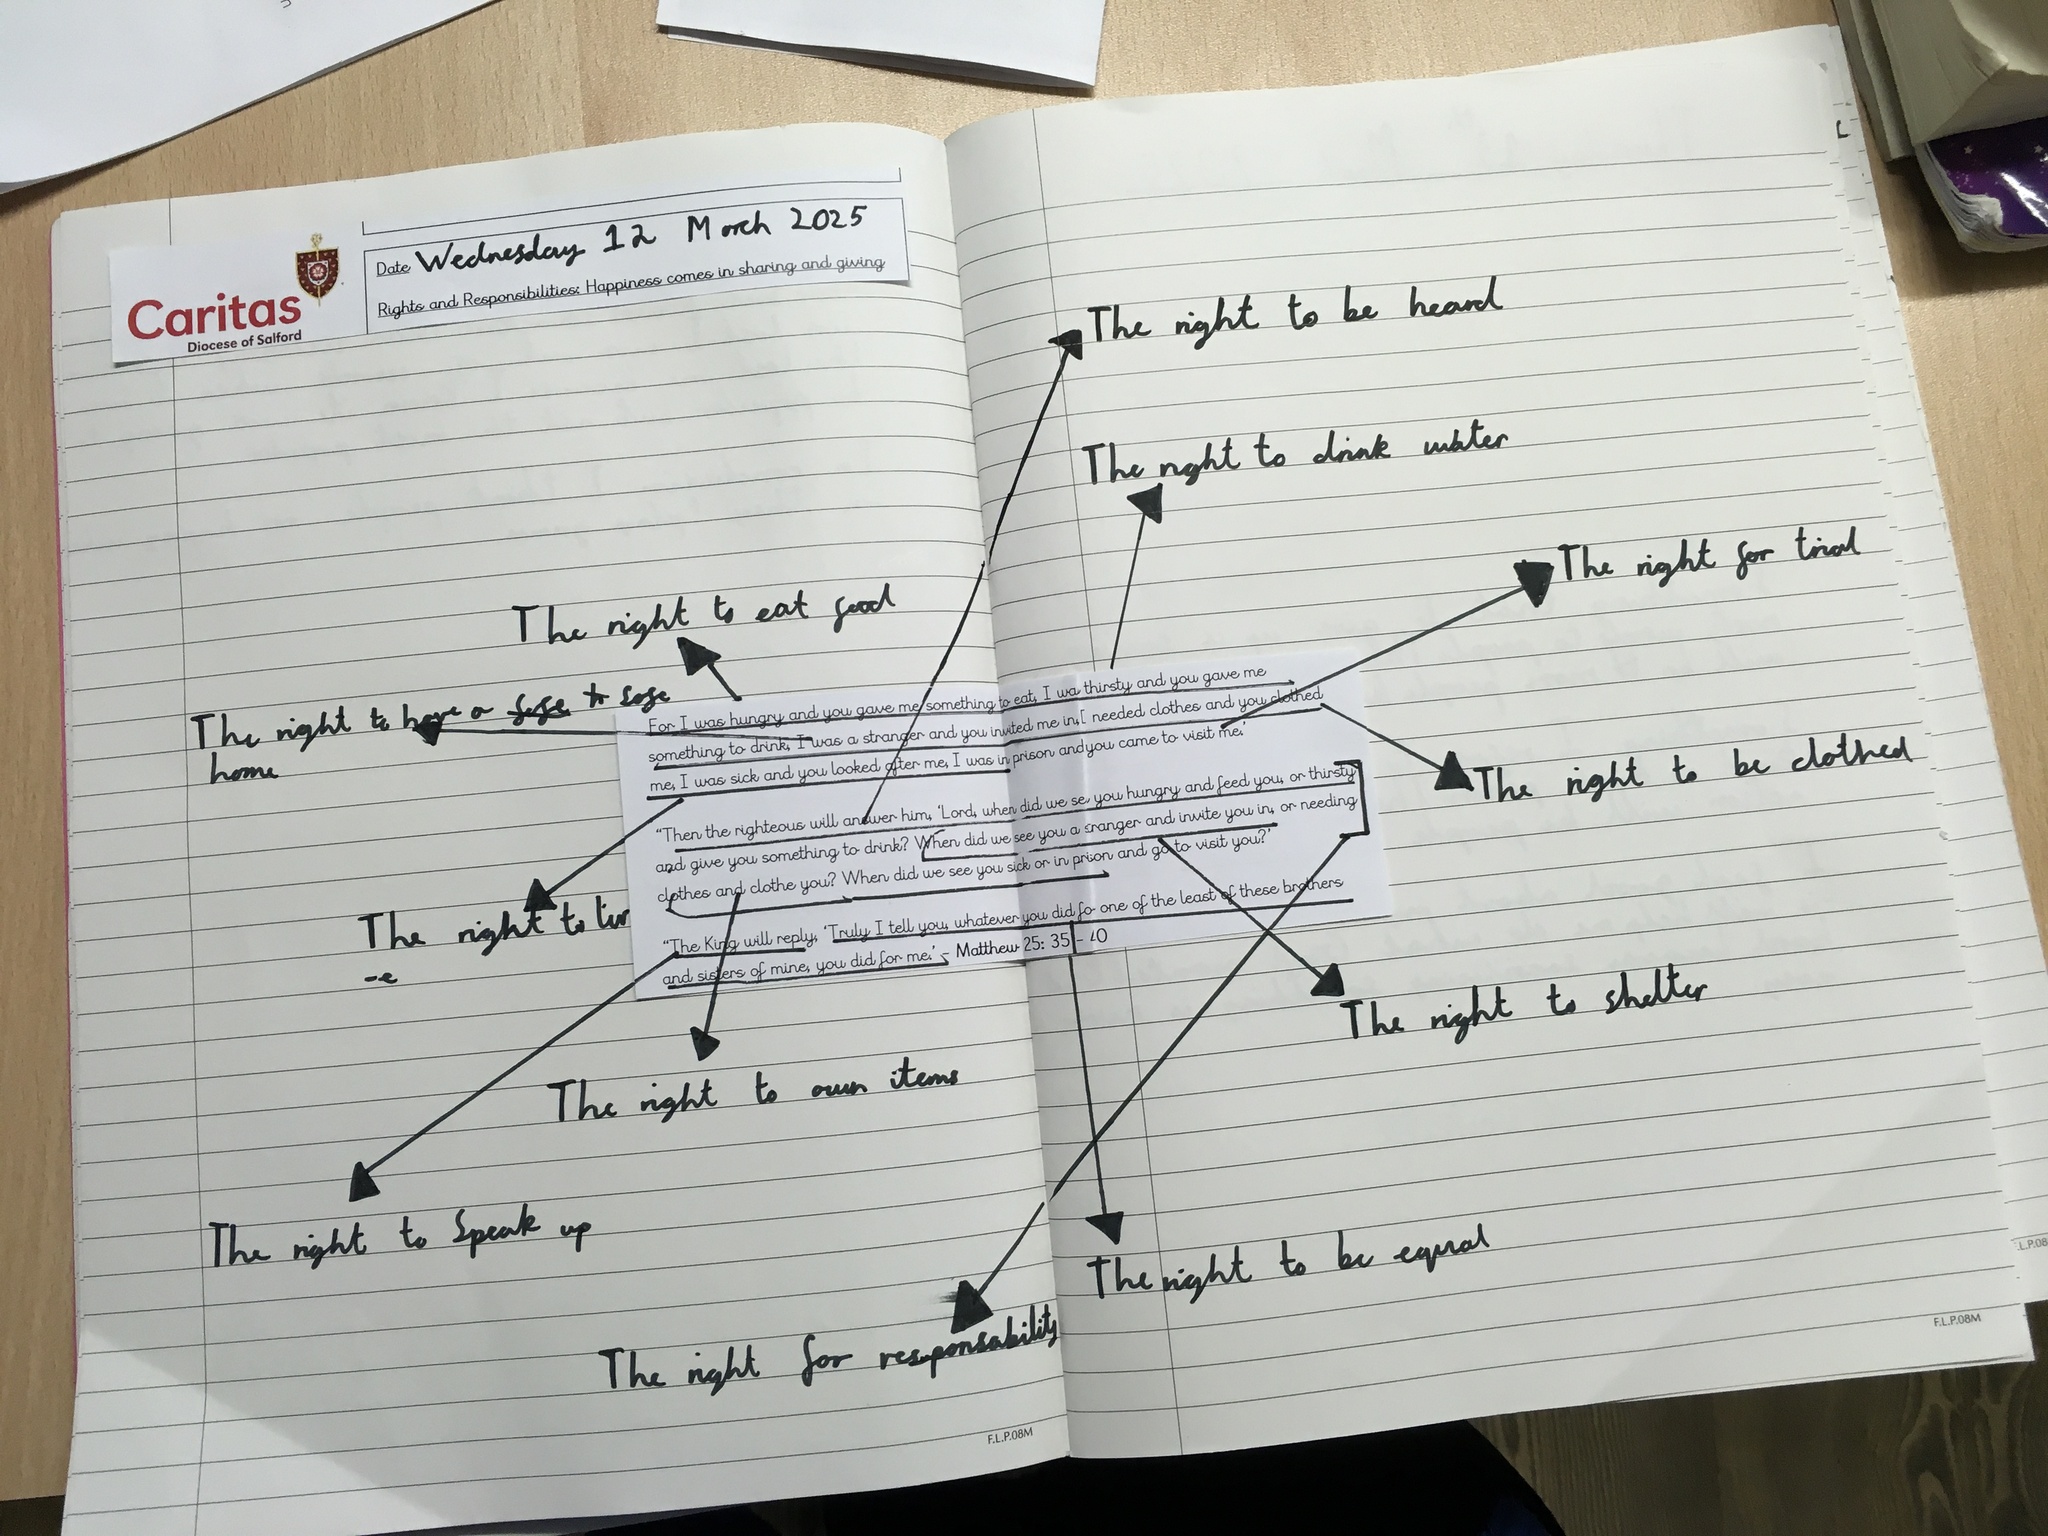 Caritas
Diocese of Salford
Date Wednesday 12 March 2025
Rights and Responsibilities: Happiness comes in sharing and giving
The right to be heard
The right to drink water
The right for trial
The right to eat food
The right to have a safe to safe
home
For I was hungry and you gave me something to eat, I wa thirsty and you gave me
something to drink, I was a stranger and you invited me in, I needed clothes and you clothed
me, I was sick and you looked after me, I was in prison and you came to visit me.'
"Then the righteous will answer him, 'Lord, when did we se you hungry and feed you, or thirsty
and give you something to drink? When did we see you a sranger and invite you in, or needing
clothes and clothe you? When did we see you sick or in prison and go to visit you?'
"The King will reply, 'Truly I tell you, whatever you did fo one of the least of these brothers
and sisters of mine, you did for me.' - Matthew 25: 35 - 40
The right to be clothed
The right to liv
-e
The right to shelter
The right to own items
The right to speak up
The right to be equal
The right for responsability
F.L.P.08M
F.L.P.08M
L.P.08